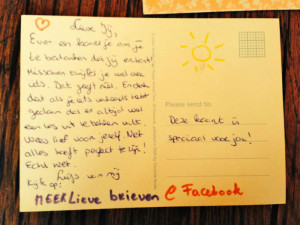 Lieve Jij,
Even een kaartje om je
te bedanken dat jij er bent!
Misschien twijfel je wel over
iets. Dat geeft niet. En denk
dat als je iets verkeerds hebt
gedaan dat er altijd wel
een les uit te halen valt.
Wees lief voor jezelf. Net
alles hoeft perfect te zijn!
Echt niet.
Liefs van mij
Kijk op:
MEER Lieve brieven e Facebook
Please send to:
Deze kaart is
speciaal voor jou!